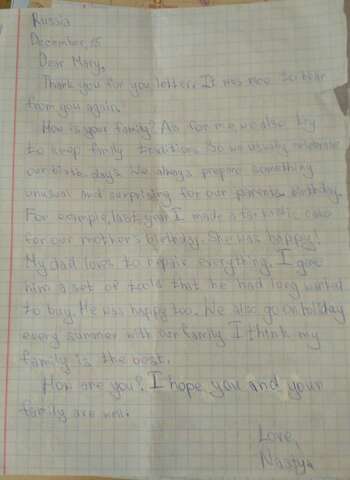 Russia
December, 15
Dear Mary,
Thank you for you letter. It was nice to hear
from you again.
How is your family? As for me, we also try
to keep family traditions. So we usually celebrate
our birthdays. We always prepare something
unusual and surprising for our parents birthday.
For example, last year I made a fantastic cake
for our mother's birthday. She was happy!
My dad loves to repair everything. I gave
him a set of tools that he had long wanted
to buy. He was happy too. We also go on holiday
every summer with our family. I think my
family is the best.
How are you? I hope you and your
family are well.
Love,
Nastya